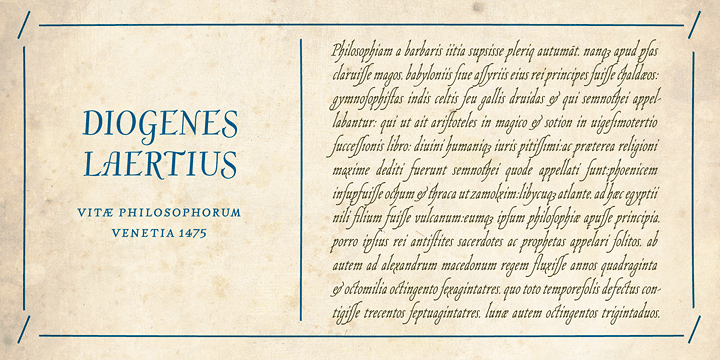 DIOGENES
LAERTIUS
VITÆ PHILOSOPHORUM
VENETIA 1475
Philosophiam a barbaris iitia supsisse pleriq autumāt. nanqꝫ apud pſas
claruiſſe magos. babyloniis ſiue aſſyriis eius rei principes fuiſſe chaldæos:
gymnoſophiſtas indis celtis ſeu gallis druidas & qui semnothei appel-
labantur: qui ut ait ariſtoteles in magico & sotion in uigeſimotertio
ſucceſſionis libro: diuini humaniqꝫ iuris pitiſſimi:ac præterea religioni
maxime dediti fuerunt semnothei quode appellati ſunt:phoenicem
inſupfuiſſe ochum & thraca ut zamolxim.libycuqꝫ atlante. ad hæc egyptii
nili filium fuiſſe vulcanum:eumqꝫ ipſum philoſophiæ apuſſe principia.
porro ipſius rei antiſtites sacerdotes ac prophetas appelari ſolitos. ab
autem ad alexandrum macedonum regem fluxiſſe annos quadraginta
& octomilia octingento ſexagintatres. quo toto temporeſolis defectus con-
tigiſſe trecentos ſeptuagintatres. lunæ autem octingentos trigintaduos.